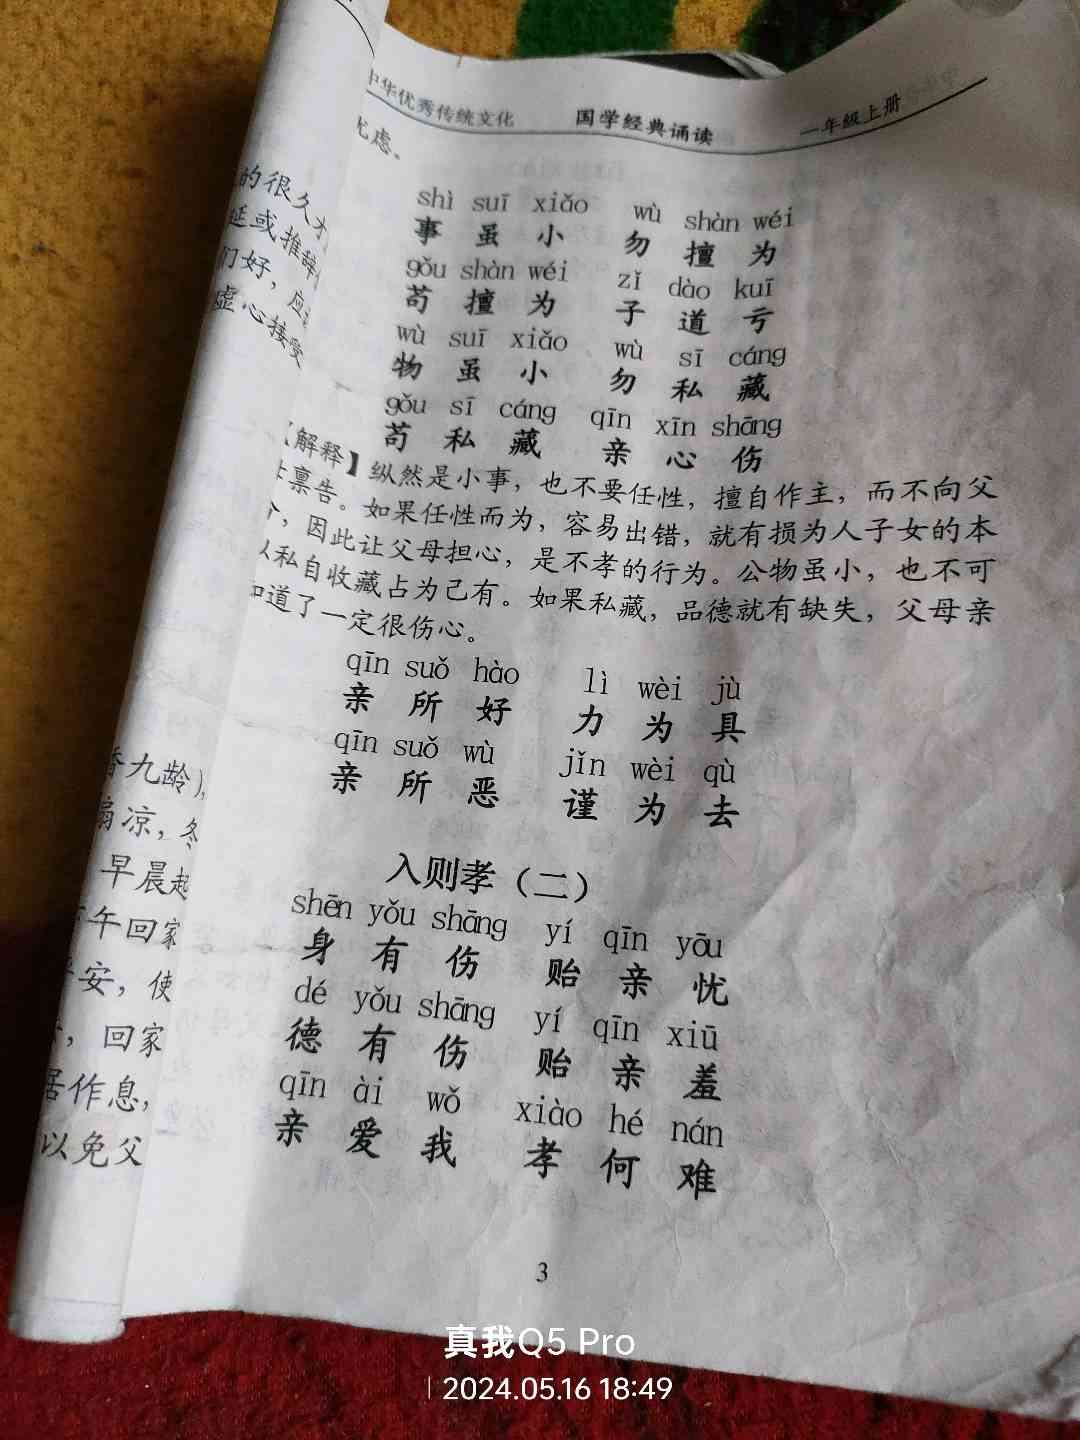 中华优秀传统文化 国学经典诵读 一年级上册
虑。
shì suī xiǎo wù shàn wéi
事 虽 小 勿 擅 为
gǒu shàn wéi zǐ dào kuī
苟 擅 为 子 道 亏
wù suī xiǎo wù sī cáng
物 虽 小 勿 私 藏
gǒu sī cáng qīn xīn shāng
苟 私 藏 亲 心 伤
【解释】纵然是小事，也不要任性，擅自作主，而不向父
禀告。如果任性而为，容易出错，就有损为人子女的本
，因此让父母担心，是不孝的行为。公物虽小，也不可
私自收藏占为己有。如果私藏，品德就有缺失，父母亲
道了一定很伤心。
qīn suǒ hào lì wèi jù
亲 所 好 力 为 具
qīn suǒ wù jǐn wèi qù
亲 所 恶 谨 为 去
入则孝（二）
shēn yǒu shāng yí qīn yōu
身 有 伤 贻 亲 忧
dé yǒu shāng yí qīn xiū
德 有 伤 贻 亲 羞
qīn ài wǒ xiào hé nán
亲 爱 我 孝 何 难
3
的很久
延或推辞
们好，应
虚心接受
九龄）
扇凉，冬
早晨起
午回家
安，使
，回家
居作息，
以免父
真我Q5 Pro
2024.05.16 18:49